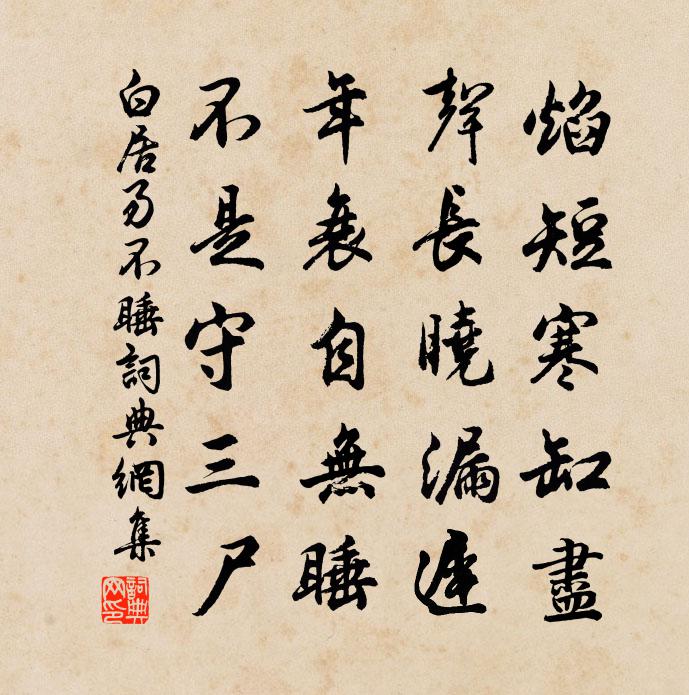 焰短寒缸盡
聲長曉漏遲
年衰自無睡
不是守三尸
白居易不睡詞典網集
詞典網印